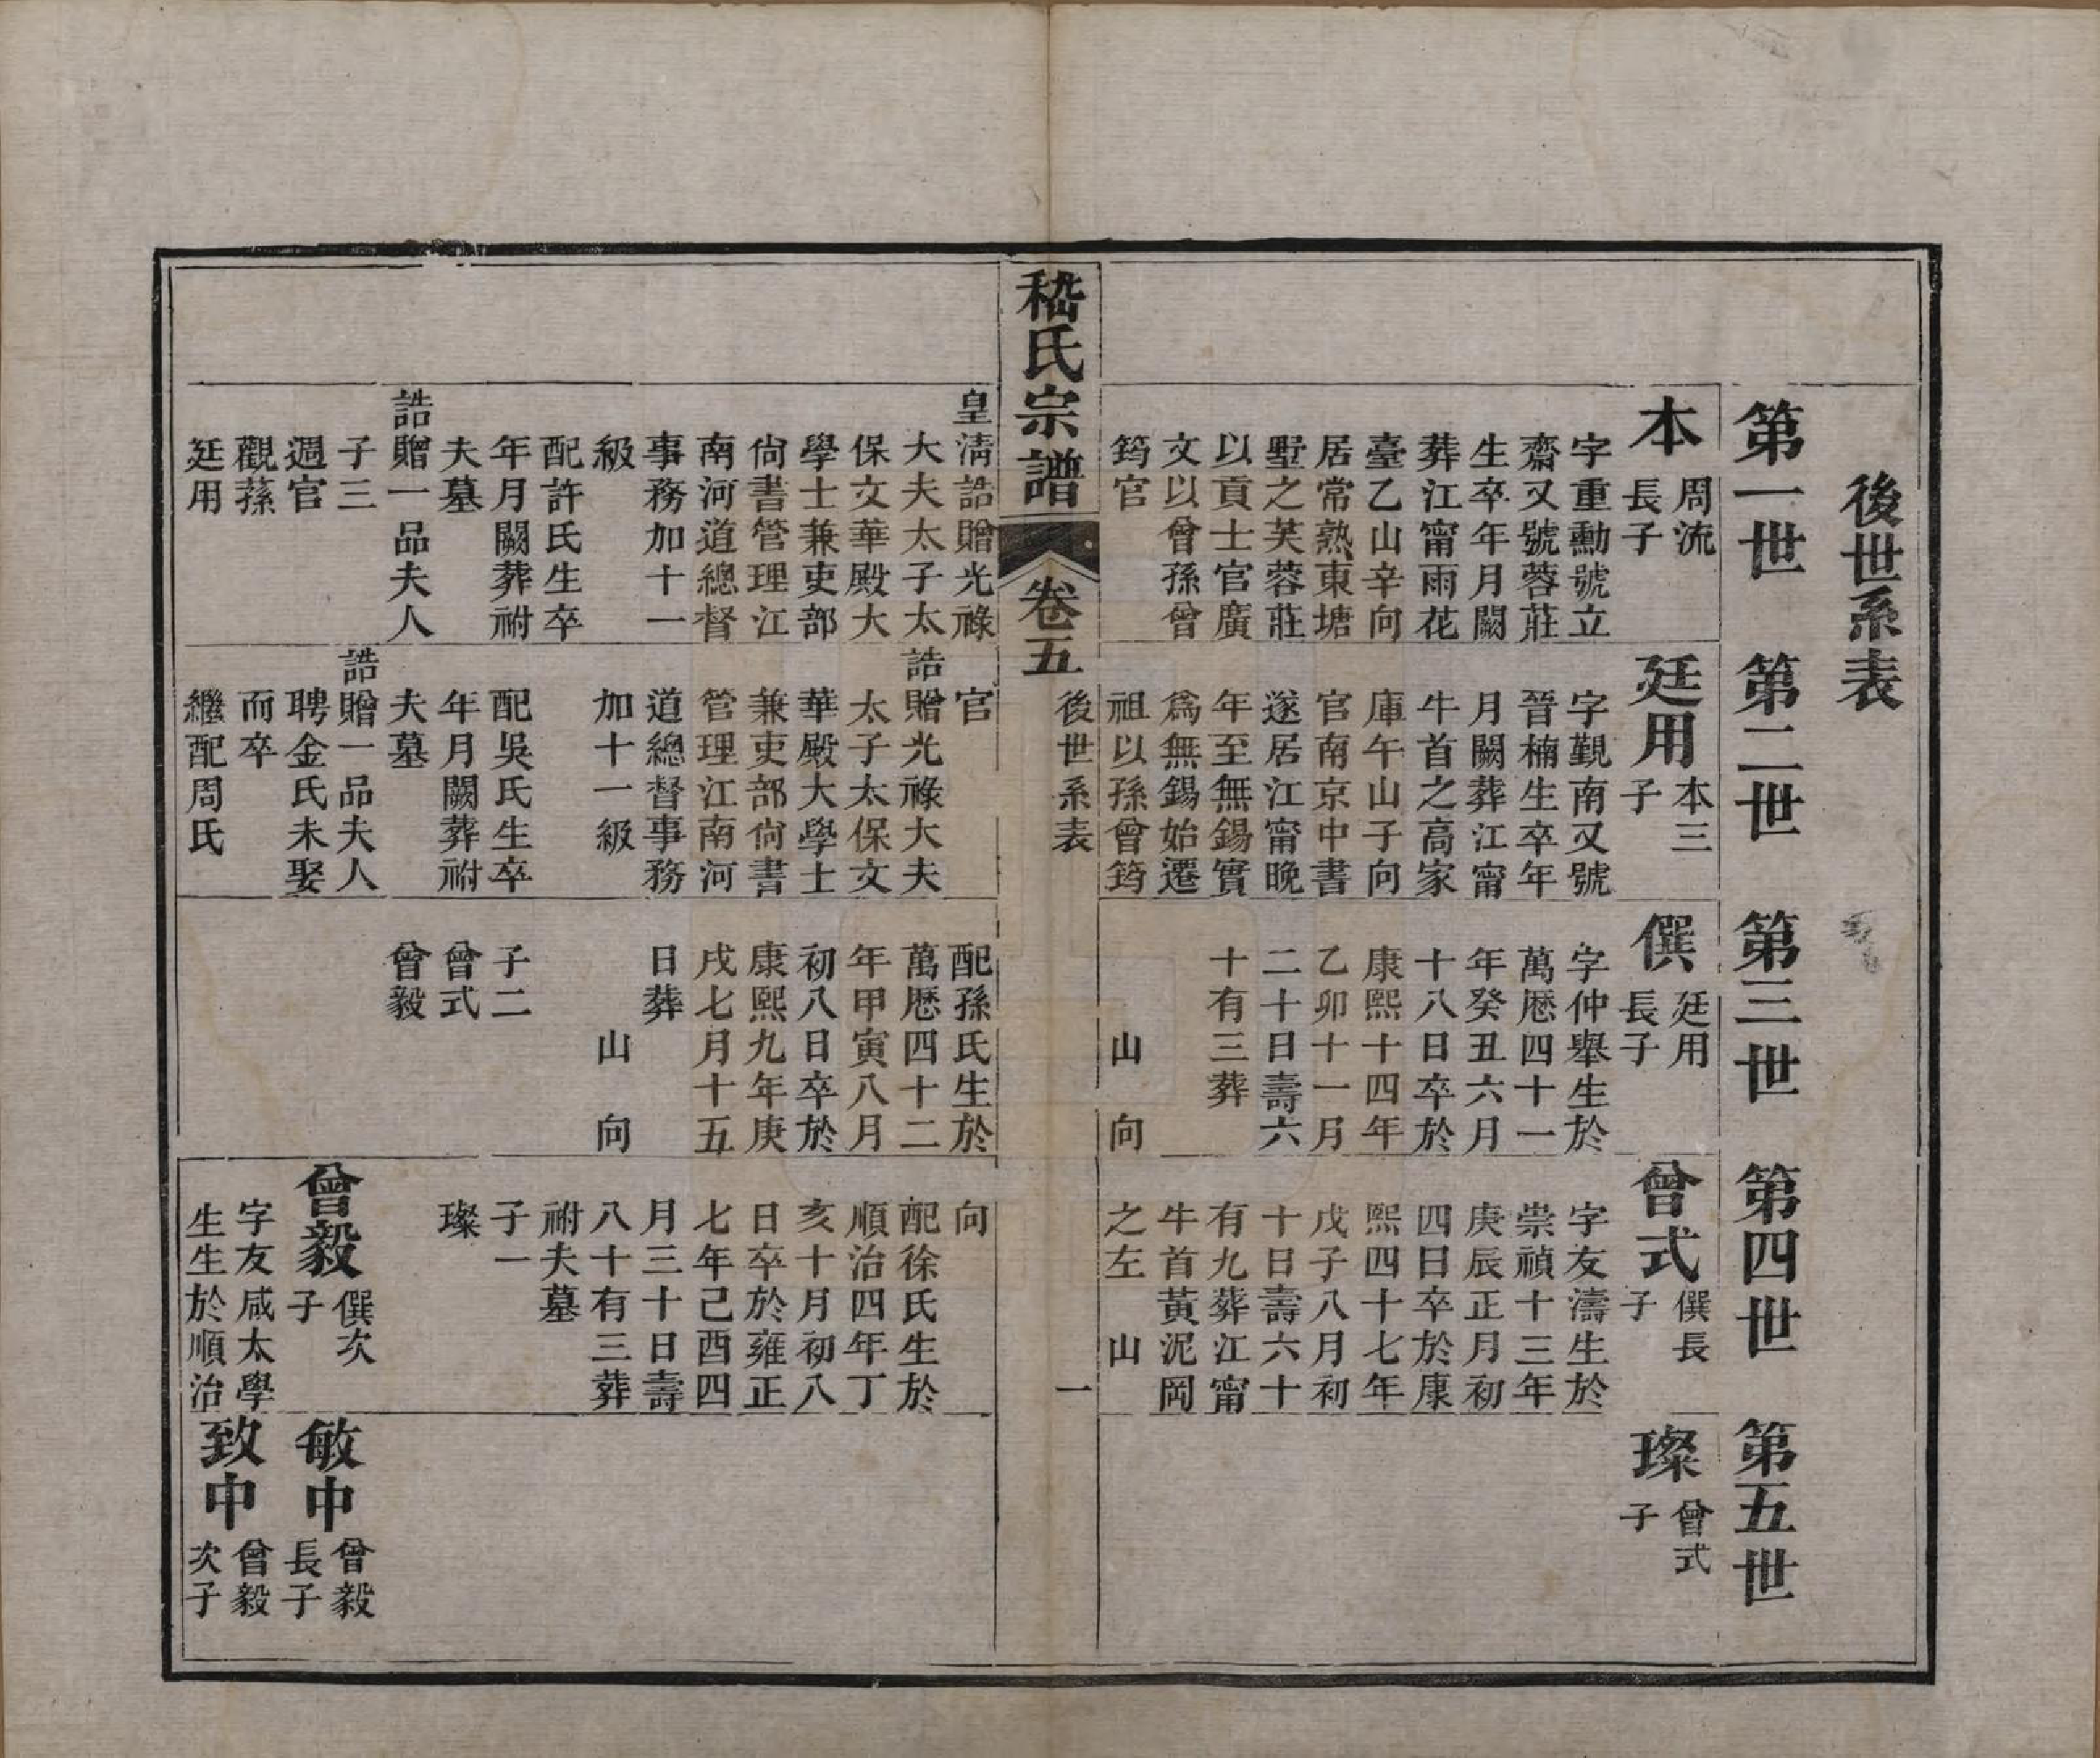 後世系表
第一世
第二世
第三世
第四世
第五世
本
周流
長子
字重勳號立
齋又號蓉莊
生卒年月闕
葬江甯雨花
臺乙山辛向
居常熟東塘
墅之芙蓉莊
以貢士官廣
文以曾孫曾
筠官
廷用
本三
子
字覲南又號
晉楠生卒年
月闕葬江甯
牛首之高家
庫午山子向
官南京中書
遂居江甯晚
年至無錫實
爲無錫始遷
祖以孫曾筠
僎
廷用
長子
字仲舉生於
萬厯四十一
年癸丑六月
十八日卒於
康熙十四年
乙卯十一月
二十日壽六
十有三葬
山 向
曾式
僎長
子
字友濤生於
崇禎十三年
庚辰正月初
四日卒於康
熙四十七年
戊子八月初
十日壽六十
有九葬江甯
牛首黃泥岡
之左 山
璨
曾式
子
嵇氏宗譜
卷五
後世系表
一
皇淸誥贈光祿
大夫太子太
保文華殿大
學士兼吏部
尙書管理江
南河道總督
事務加十一
級
配許氏生卒
年月闕葬祔
夫墓
誥贈一品夫人
子三
週官
觀蓀
廷用
官
誥贈光祿大夫
太子太保文
華殿大學士
兼吏部尙書
管理江南河
道總督事務
加十一級
配吳氏生卒
年月闕葬祔
夫墓
誥贈一品夫人
聘金氏未娶
而卒
繼配周氏
配孫氏生於
萬厯四十二
年甲寅八月
初八日卒於
康熙九年庚
戌七月十五
日葬
山 向
子二
曾式
曾毅
向
配徐氏生於
順治四年丁
亥十月初八
日卒於雍正
七年己酉四
月三十日壽
八十有三葬
祔夫墓
子一
璨
曾毅
僎次
子
字友咸太學
生生於順治
敏中
曾毅
長子
致中
曾毅
次子